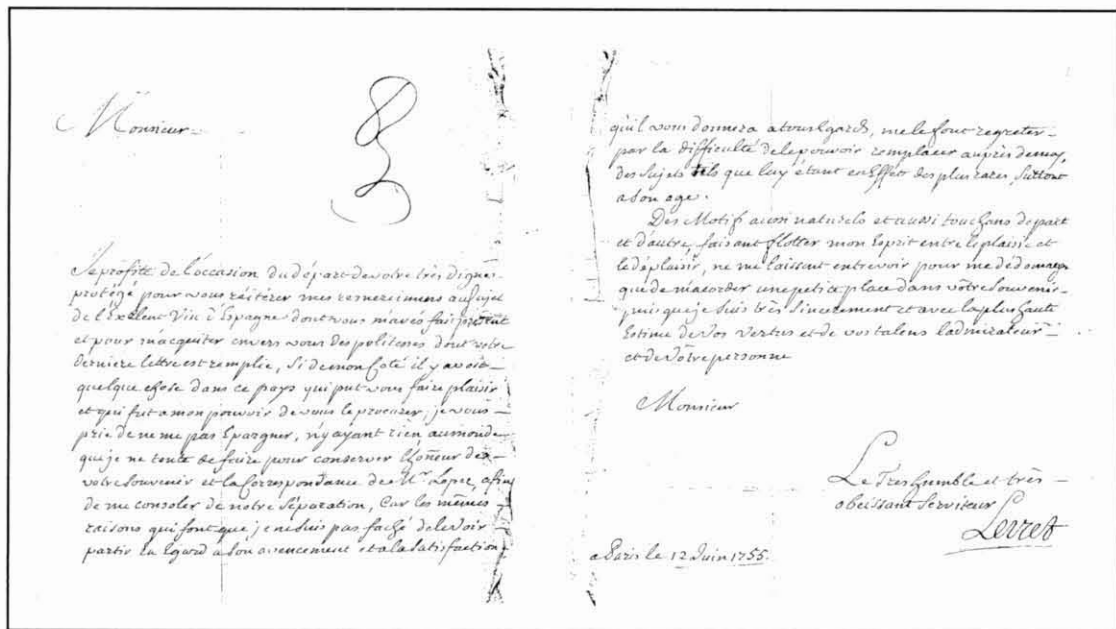 Monsieur
Je profitte de l'occasion du départ de votre très digne
protégé pour vous réiterer mes remercimens au sujet
de l'Exelent Vin d'Espagne dont vous m'avés fait present
et pour m'acquiter envers vous des politesses dont votre
derniere lettre est remplie, Si de mon Coté il y avoit
quelque chose dans ce pays qui put vous faire plaisir
et qui fut a mon pouvoir de vous le procurer, je vous
prie de ne me pas Epargner, n'y ayant rien au monde
que je ne tente de faire pour conserver l'hoñeur de
votre souvenir et la Correspondance de Mr. Lopez, afin
de me consoler de notre Séparation, Car les mêmes
raisons qui font que je ne suis pas faché de le voir
partir En Egard a son avencement et a la satisfaction
qu'il vous donnera a tous Egards, me le font regreter
par la difficulté de le pouvoir remplacer auprès de moy,
des Sujets tels que luy étant en Effett des plus rares, surtout
a son age.
Des Motifs aussi naturels et aussi touchans de part
et d'autre, faisant flotter mon Esprit entre le plaisir et
le déplaisir, ne me laissent entrevoir pour me dédomager
que de m'acorder une petite place dans votre Souvenir
puis que je suis très sincerement et avec la plus haute
Estime de Vos Vertus et de vos talens l'admirateur
et de Votre personne
Monsieur
Le Tres humble et très
obeissant Serviteur
Lerret
a Paris le 12 Juin 1755.